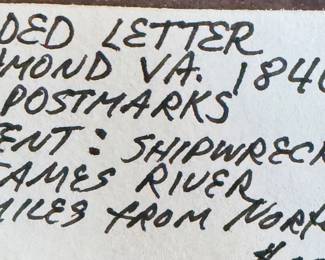 DED LETTER
MOND VA. 184
POSTMARKS
ENT: SHIPWREC
AMES RIVER
MILES FROM NORF
$